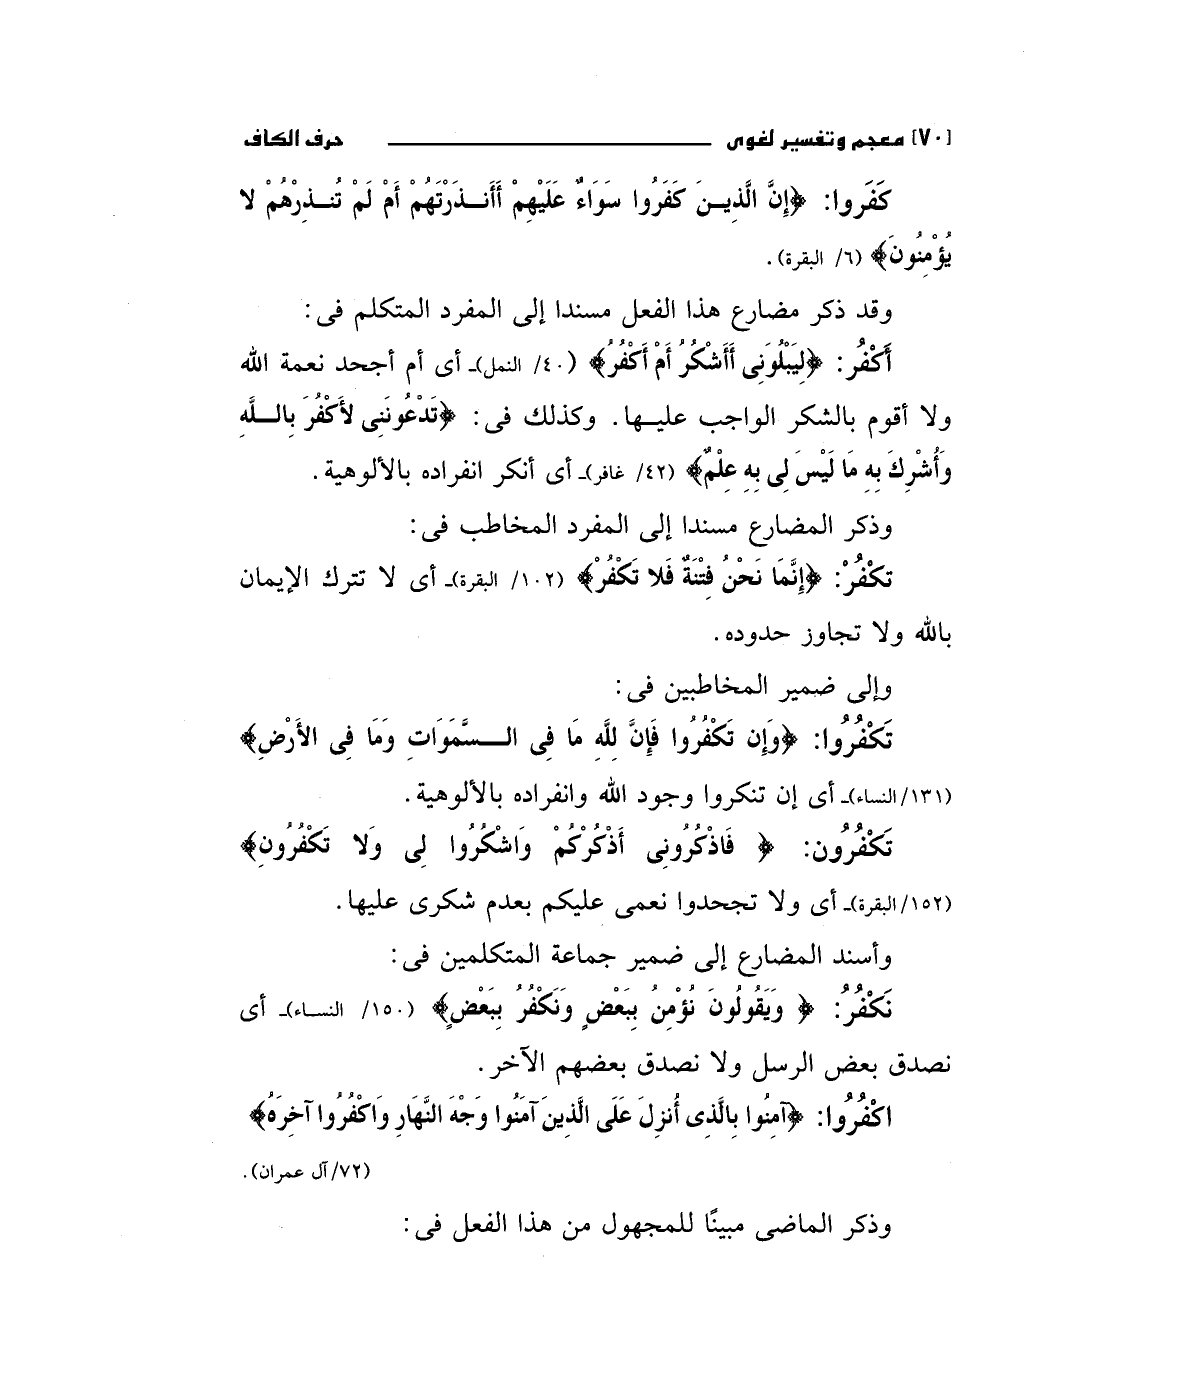 [٧٠] معجم وتفسير لغوى حرف الكاف
كَفَروا: ﴿إِنَّ الَّذِيـنَ كَفَرُوا سَوَاءٌ عَلَيْهِمْ أَأَنـذَرْتَهُمْ أَمْ لَمْ تُنـذِرْهُمْ لا
يُؤْمِنُونَ﴾ (٦/ البقرة).
وقد ذكر مضارع هذا الفعل مسندا إلى المفرد المتكلم فى:
أَكْفُر: ﴿لِيَبْلُوَنِى أَأَشْكُرُ أَمْ أَكْفُرُ﴾ (٤٠/ النمل)ـ أى أم أجحد نعمة الله
ولا أقوم بالشكر الواجب عليـها. وكذلك فى: ﴿تَدْعُونَنِى لأَكْفُرَ بِالـلَّهِ
وَأُشْرِكَ بِهِ مَا لَيْسَ لِى بِهِ عِلْمٌ﴾ (٤٢/ غافر)ـ أى أنكر انفراده بالألوهية.
وذكر المضارع مسندا إلى المفرد المخاطب فى:
تكْفُرْ: ﴿إِنَّمَا نَحْنُ فِتْنَةٌ فَلا تَكْفُرْ﴾ (١٠٢/ البقرة)ـ أى لا تترك الإيمان
بالله ولا تجاوز حدوده.
وإلى ضمير المخاطبين فى:
تَكْفُرُوا: ﴿وَإِن تَكْفُرُوا فَإِنَّ لِلَّهِ مَا فِى الـسَّمَوَاتِ وَمَا فِى الأَرْضِ﴾
(١٣١/النساء)ـ أى إن تنكروا وجود الله وانفراده بالألوهية.
تَكْفُرُون: ﴿ فَاذْكُرُونِى أَذْكُرْكُمْ وَاشْكُرُوا لِى وَلا تَكْفُرُونِ﴾
(١٥٢/البقرة)ـ أى ولا تجحدوا نعمى عليكم بعدم شكرى عليها.
وأسند المضارع إلى ضمير جماعة المتكلمين فى:
نَكْفُرُ: ﴿ وَيَقُولُونَ نُؤْمِنُ بِبَعْضٍ وَنَكْفُرُ بِبَعْضٍ﴾ (١٥٠/ النساء)ـ أى
نصدق بعض الرسل ولا نصدق بعضهم الآخر.
اكْفُرُوا: ﴿آمِنُوا بِالَّذِى أُنزِلَ عَلَى الَّذِينَ آمَنُوا وَجْهَ النَّهَارِ وَاكْفُرُوا آخِرَهُ﴾
(٧٢/آل عمران).
وذكر الماضى مبينًا للمجهول من هذا الفعل فى: